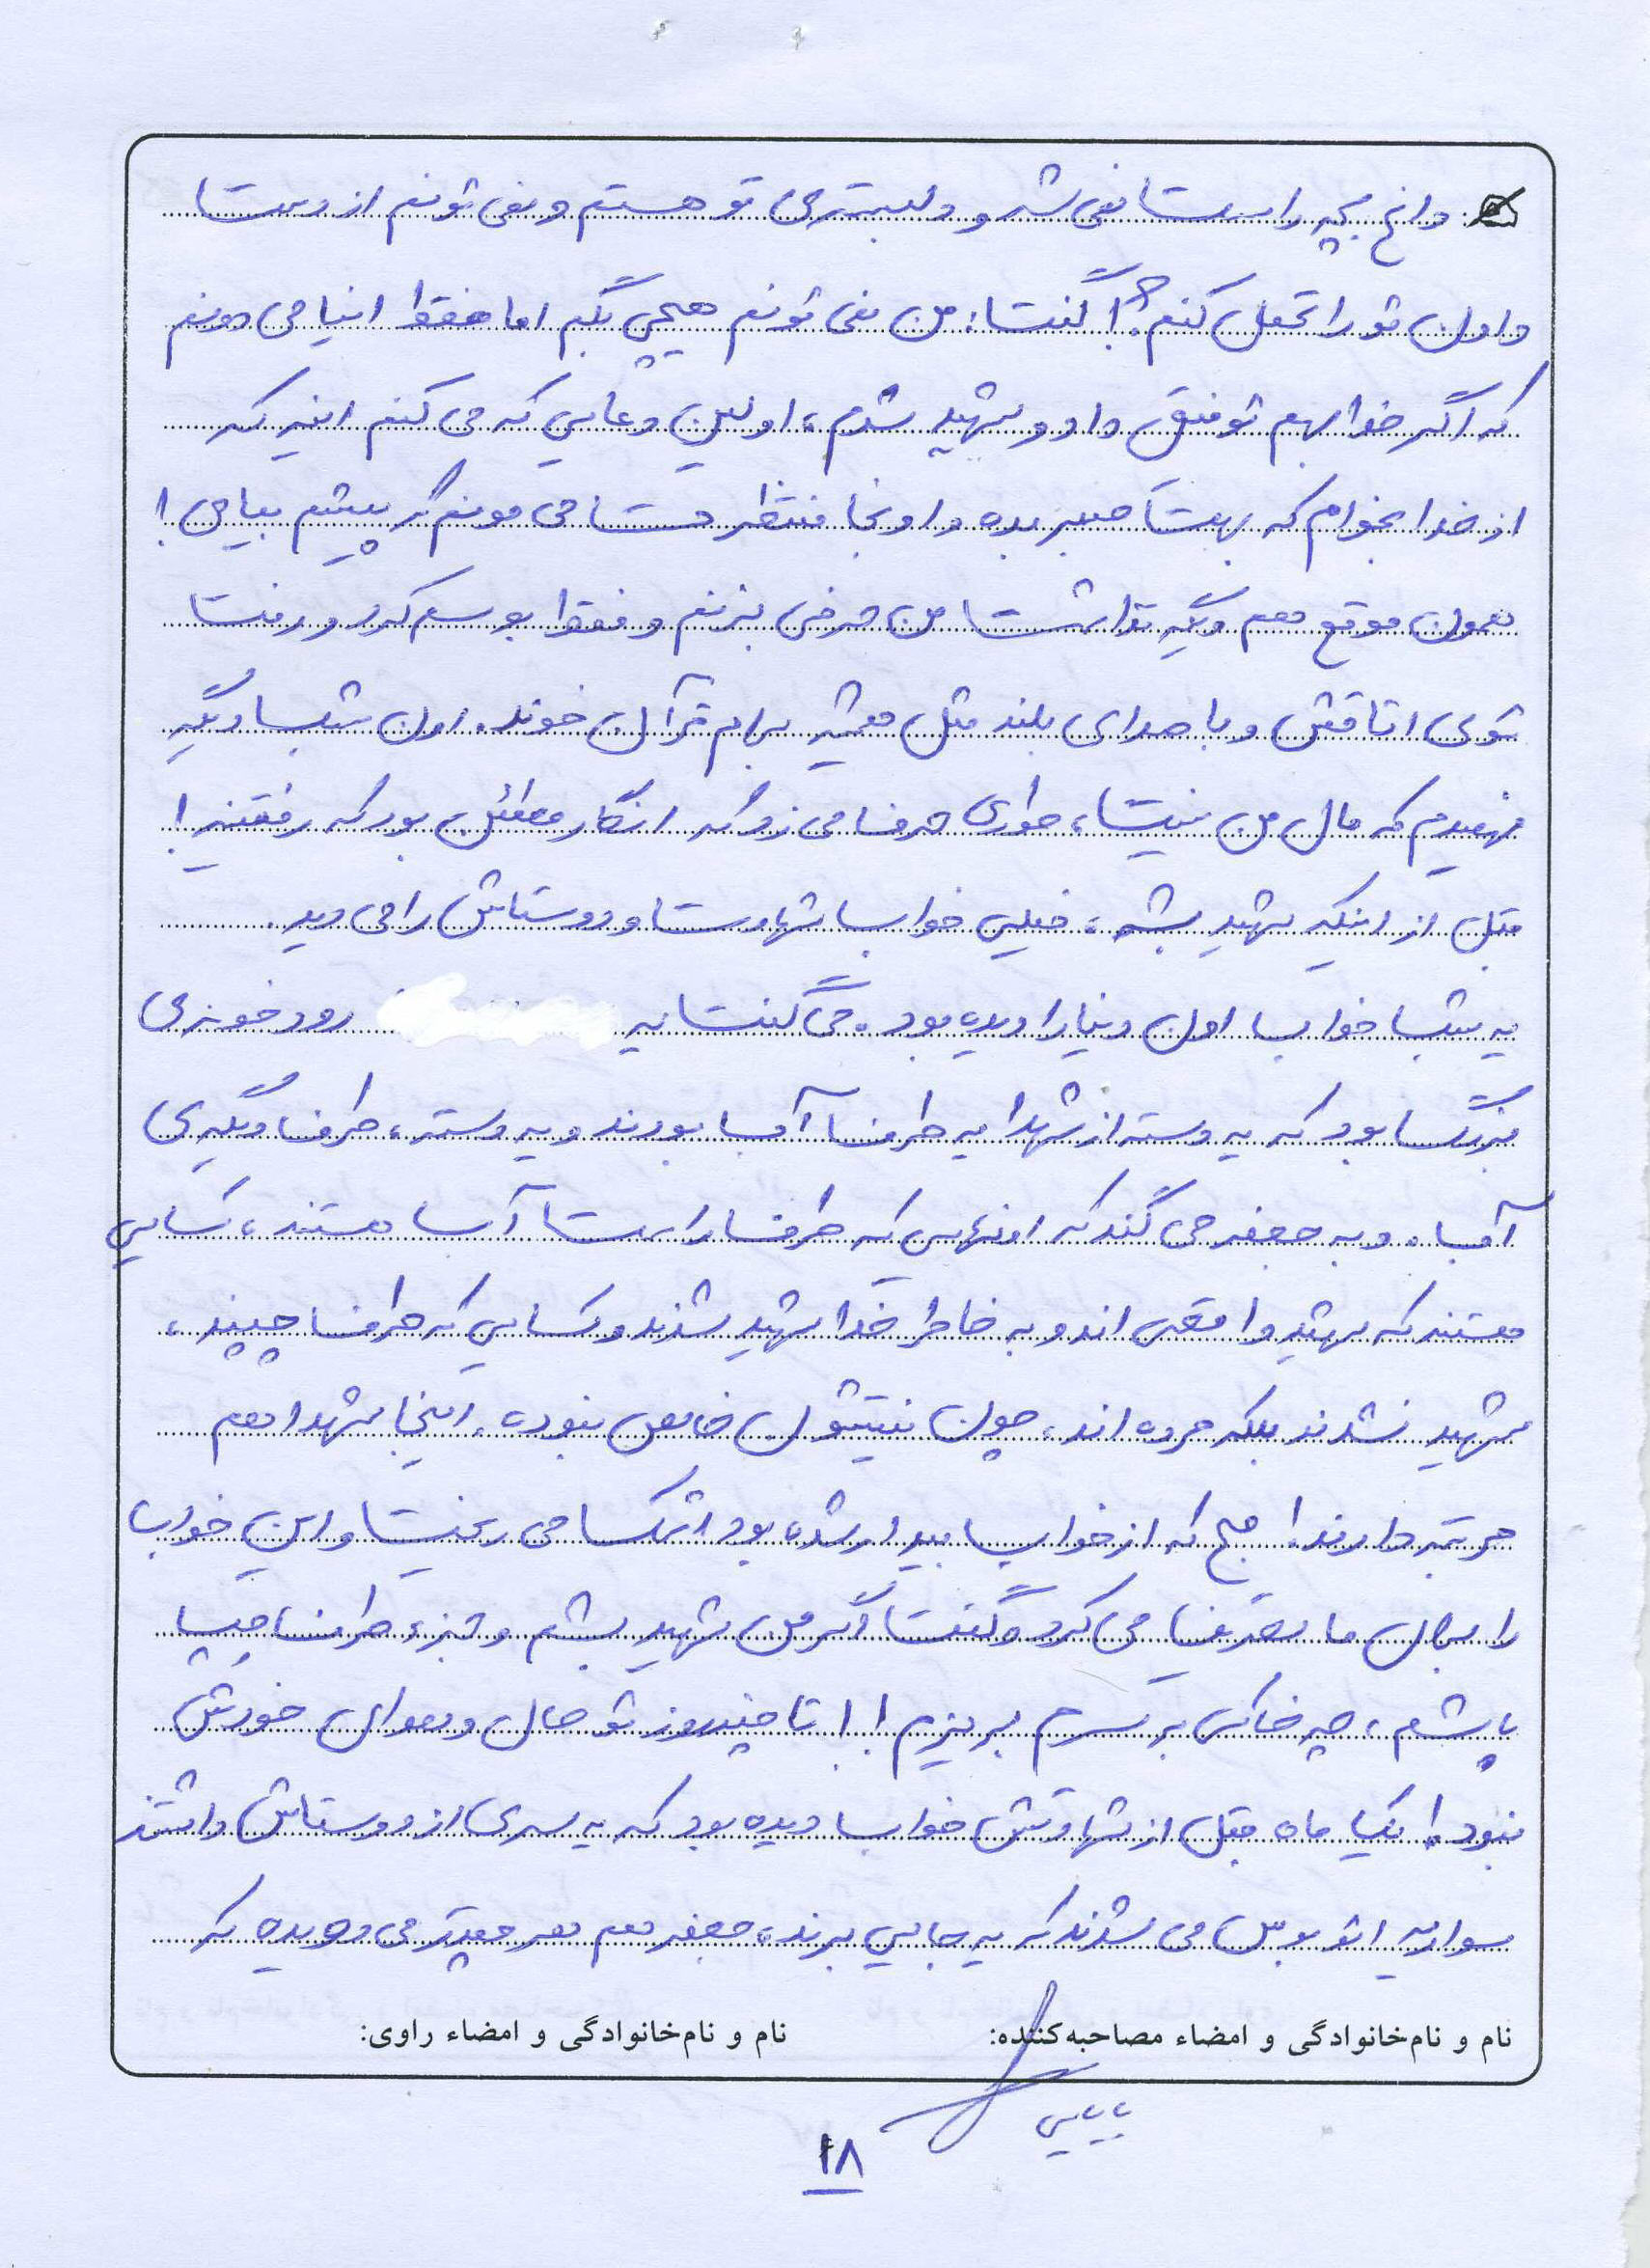 دائم بچه راست نمی‌شد و وابسته‌ی تو هستم و نمی‌تونم از دست
دادن تو را تحمل کنم؟! گفت: من نمی‌تونم هیچی بگم اما فقط اینا می‌دونم
که اگر خدا بهم توفیق داد و شهید شدم، اولین دعایی که می‌کنم اینه که
از خدا بخوام که بهت صبر بده و اونجا منتظرت می‌مونم که پیشم بیایی!
همون موقع هم دیگه نذاشت من حرفی بزنم و فقط بوسم کرد و رفت
توی اتاقش و با صدای بلند مثل همیشه برام قرآن خوند. اون شب دیگه
فهمیدم که مال من نیست، جوری حرف می‌زد که انگار مطمئن بود که رفتنیه!
قبل از اینکه شهید بشه، خیلی خواب شهادت و دوستاش را می‌دید.
یه شب خواب اون دنیا را دیده بود. می‌گفت یه رودخونه‌ی
بزرگ بود که یه دسته از شهدا یه طرف آب بودند و یه دسته، طرف دیگه‌ی
آب. و به جعفر می‌گند که اونهایی که طرف راست آب هستند، کسایی
هستند که شهید واقعی‌اند و به خاطر خدا شهید شدند و کسایی که طرف چپند،
شهید نشدند بلکه مرده‌اند، چون نیتشون خالص نبوده. اینجا شهدا هم
مرتبه دارند! صبح که از خواب بیدار شده بود اشک می‌ریخت و این خواب
را برای ما تعریف می‌کرد و گفت اگر من شهید بشم و جزء طرف چپیا
باشم، چه خاکی بر سرم بریزم!! تا چند روز تو حال و هوای خودش
نبود! یک ماه قبل از شهادتش خواب دیده بود که یه سری از دوستاش داشتند
سوار یه اتوبوس می‌شدند که یه جایی برند، جعفر هم هر چقدر می‌دویده که
نام و نام‌خانوادگی و امضاء مصاحبه‌کننده: نام و نام‌خانوادگی و امضاء راوی:
بابایی
۱۸